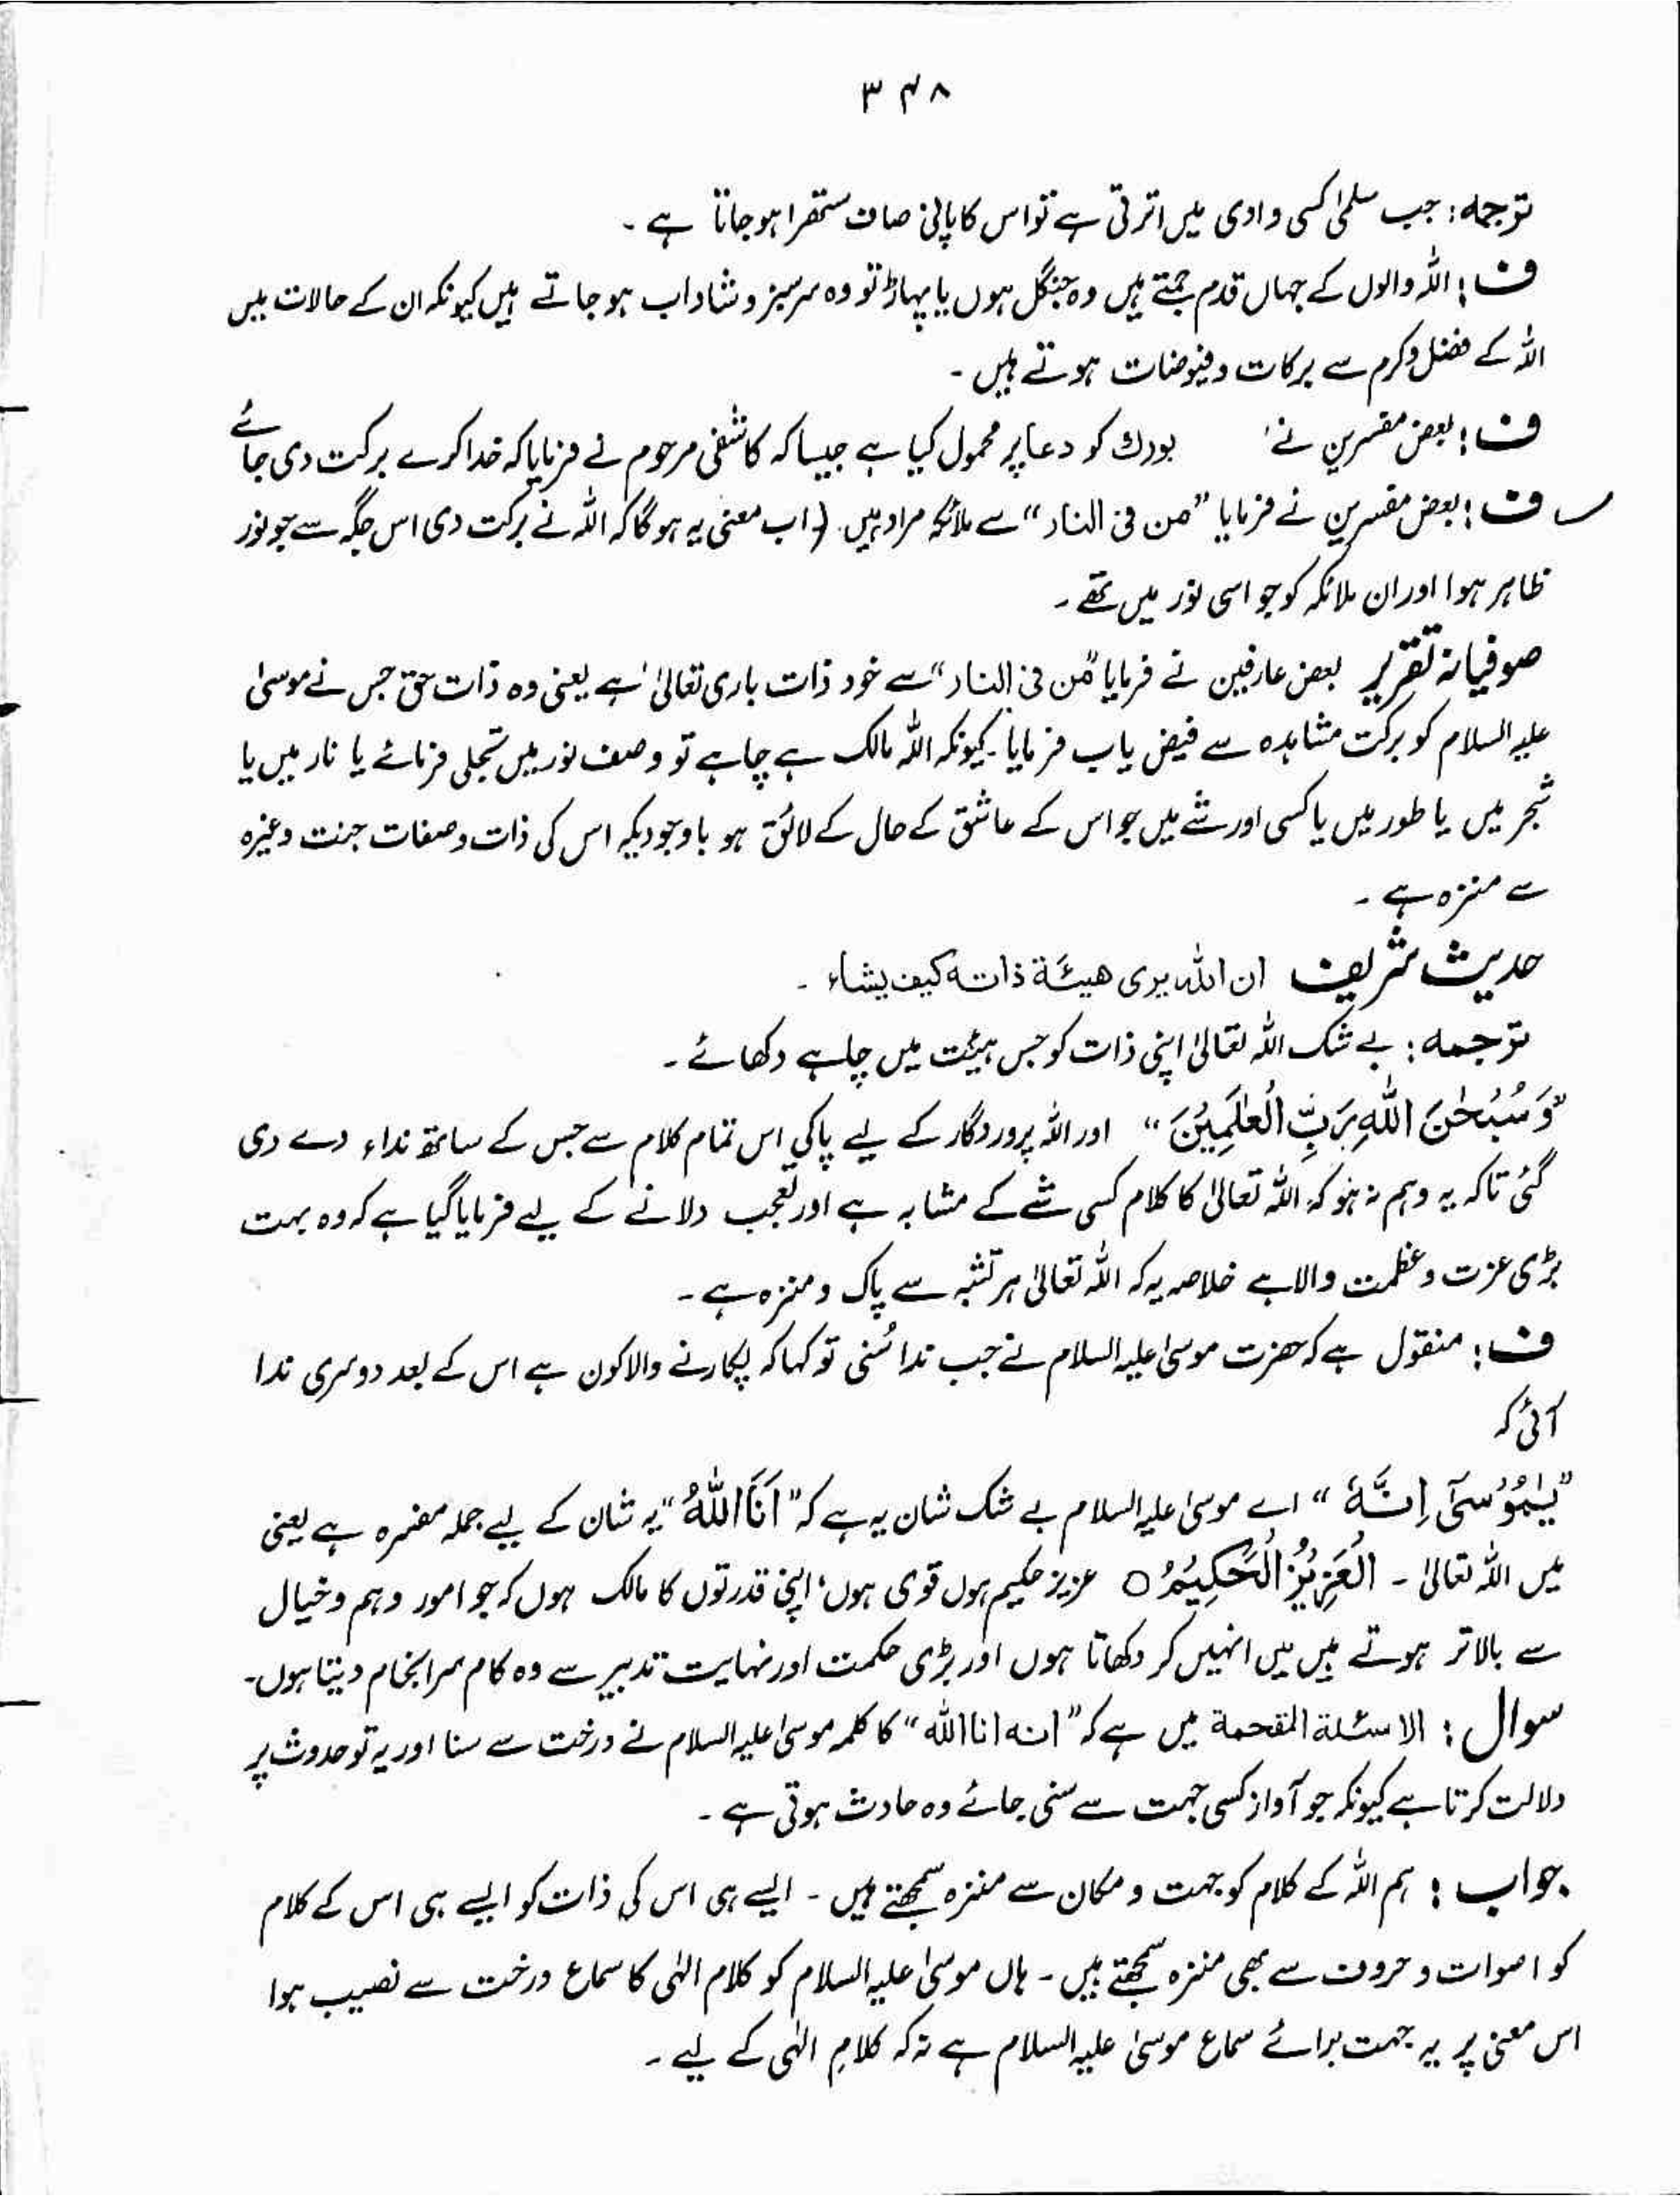 ۳۴۸
ترجمہ: جب سلمیٰ کسی وادی میں اترتی ہے تو اس کا پانی صاف ستھرا ہو جاتا ہے ۔
ف: اللہ والوں کے جہاں قدم جمتے ہیں وہ جنگل ہوں یا پہاڑ تو وہ سرسبز و شاداب ہو جاتے ہیں کیونکہ ان کے حالات میں
اللہ کے فضل و کرم سے برکات و فیوضات ہوتے ہیں ۔
ف: بعض مفسرین نے بورك کو دعا پر محمول کیا ہے جیسا کہ کاشفی مرحوم نے فرمایا کہ خدا کرے برکت دی جائے
ف: بعض مفسرین نے فرمایا "من فی النار" سے ملائکہ مراد ہیں۔ (اب معنی یہ ہوگا کہ اللہ نے برکت دی اس جگہ سے جو نور
ظاہر ہوا اور ان ملائکہ کو جو اسی نور میں تھے ۔
صوفیانہ تقریر بعض عارفین نے فرمایا "مَن فی النار" سے خود ذات باری تعالیٰ ہے یعنی وہ ذات حق جس نے موسیٰ
علیہ السلام کو برکت مشاہدہ سے فیض یاب فرمایا۔ کیونکہ اللہ مالک ہے چاہے تو وصف نور میں تجلی فرمائے یا نار میں یا
شجر میں یا طور میں یا کسی اور شے میں جو اس کے عاشق کے حال کے لائق ہو باوجودیکہ اس کی ذات وصفات جہت وغیرہ
سے منزہ ہے ۔
حدیث شریف ان اللہ یری ھیئة ذاتہ کیف یشاء ۔
ترجمہ: بے شک اللہ تعالیٰ اپنی ذات کو جس ہیئت میں چاہے دکھائے ۔
"وَسُبْحٰنَ اللّٰهِ رَبِّ الْعٰلَمِيْنَ" اور اللہ پروردگار کے لیے پاکی اس تمام کلام سے جس کے ساتھ نداء دے دی
گئی تاکہ یہ وہم نہ ہو کہ اللہ تعالیٰ کا کلام کسی شے کے مشابہ ہے اور تعجب دلانے کے لیے فرمایا گیا ہے کہ وہ بہت
بڑی عزت و عظمت والا ہے خلاصہ یہ کہ اللہ تعالیٰ ہر تشبہ سے پاک و منزہ ہے ۔
ف: منقول ہے کہ حضرت موسیٰ علیہ السلام نے جب ندا سُنی تو کہا کہ پکارنے والا کون ہے اس کے بعد دوسری ندا
آئی کہ
"يٰمُوْسٰٓى اِنَّهٗٓ" اے موسیٰ علیہ السلام بے شک شان یہ ہے کہ "اَنَا اللّٰهُ" یہ شان کے لیے جملہ مفسرہ ہے یعنی
میں اللہ تعالیٰ ۔ الْعَزِيْزُ الْحَكِيْمُ ○ عزیز حکیم ہوں قوی ہوں، اپنی قدرتوں کا مالک ہوں کہ جو امور وہم و خیال
سے بالاتر ہوتے ہیں میں انہیں کر دکھاتا ہوں اور بڑی حکمت اور نہایت تدبیر سے وہ کام سرانجام دیتا ہوں۔
سوال: الاسئلة المقحمة میں ہے کہ "انہ انا اللہ" کا کلمہ موسیٰ علیہ السلام نے درخت سے سنا اور یہ تو حدوث پر
دلالت کرتا ہے کیونکہ جو آواز کسی جہت سے سنی جائے وہ حادث ہوتی ہے ۔
جواب: ہم اللہ کے کلام کو جہت و مکان سے منزہ سمجھتے ہیں ۔ ایسے ہی اس کی ذات کو ایسے ہی اس کے کلام
کو اصوات و حروف سے بھی منزہ سمجھتے ہیں ۔ ہاں موسیٰ علیہ السلام کو کلام الٰہی کا سماع درخت سے نصیب ہوا
اس معنی پر یہ جہت برائے سماع موسیٰ علیہ السلام ہے نہ کہ کلامِ الٰہی کے لیے ۔